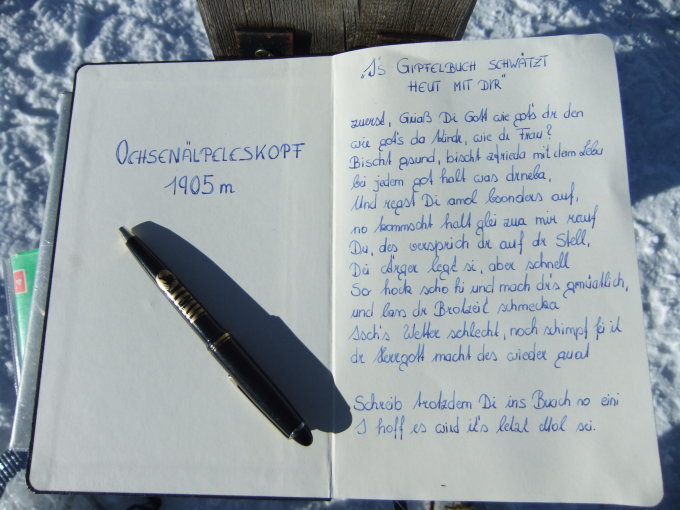 OCHSENÄLPELESKOPF
1905 m
„S'S GIPFELBUCH SCHWÄTZT
HEUT MIT DIR"
zuerst, Grüaß Di Gott wie got's dr den
wie got's da Kinde, wie dr Frau?
Bischt gsund, bischt zfrieda mit dem Leba
bei jedem got halt was drneba,
Und regst Di amol bsonders auf,
no kommscht halt glei zua mir rauf
Du, des versprich dr auf dr Stell,
Dei Ärger legt si, aber schnell
So hock scho hi und mach dr's gmüatlich,
und lass dr Brotzeit schmecka
Isch's Wetter schlecht, noch schimpf it
dr Herrgott macht des wieder guat
Schreib trotzdem Di ins Buach no eini
I hoff es wird it's letzt Mol sei.